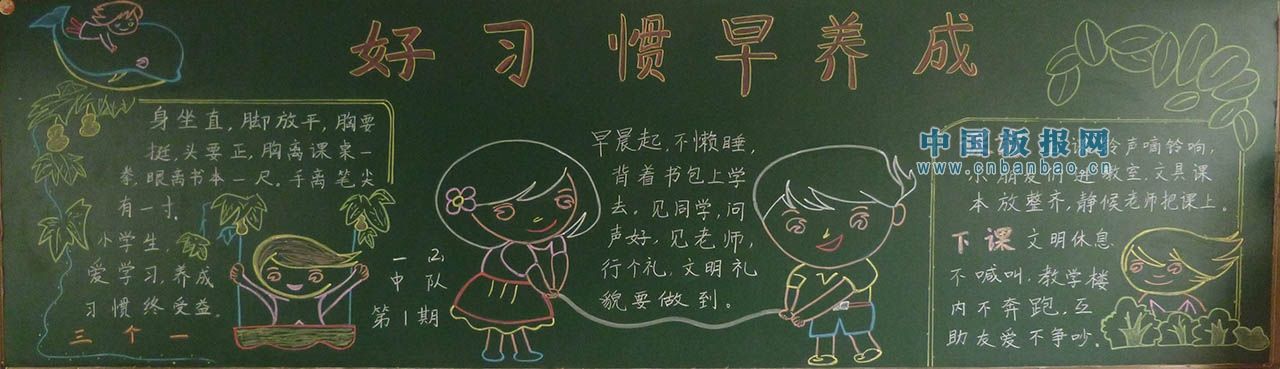 好习惯早养成
身坐直,脚放平,胸要
挺,头要正,胸离课桌一
拳,眼离书本一尺。手离笔尖
有一寸。
小学生,
爱学习,养成
习惯终受益。
三个一
一(2)
中队
第1期
早晨起,不懒睡,
背着书包上学
去。见同学,问
声好,见老师,
行个礼,文明礼
貌要做到。
中国板报网
www.cnbanbao.cn
铃声嘀铃响,
小朋友们进教室,文具课
本放整齐,静候老师把课上。
下课 文明休息
不喊叫,教学楼
内不奔跑,互
助友爱不争吵。